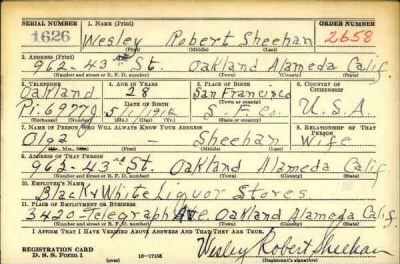 SERIAL NUMBER 1. NAME (Print) ORDER NUMBER
1626 Wesley Robert Sheehan 2658
(First) (Middle) (Last)
2. ADDRESS (Print)
962-43rd St. Oakland Alameda Calif.
(Number and street or R. F. D. number) (Town) (County) (State)
3. TELEPHONE 4. AGE IN YEARS 5. PLACE OF BIRTH 6. COUNTRY OF CITIZENSHIP
Oakland 28 San Francisco
DATE OF BIRTH (Town or county)
Pi. 69770 1912 U.S.A
(Exchange) (Number) (Mo.) (Day) (Yr.) (State or country)
7. NAME OF PERSON WHO WILL ALWAYS KNOW YOUR ADDRESS 8. RELATIONSHIP OF THAT PERSON
Olga - Sheehan Wife
(Mr., Mrs., Miss) (First) (Middle) (Last)
9. ADDRESS OF THAT PERSON
962-43rd St. Oakland Alameda Calif.
(Number and street or R. F. D. number) (Town) (County) (State)
10. EMPLOYER'S NAME
Black & White Liquor Stores.
11. PLACE OF EMPLOYMENT OR BUSINESS
3420-Telegraph Ave. Oakland Alameda Calif.
(Number and street or R. F. D. number) (Town) (County) (State)
I AFFIRM THAT I HAVE VERIFIED ABOVE ANSWERS AND THAT THEY ARE TRUE.
REGISTRATION CARD
D. S. S. Form 1 16-17105 Wesley Robert Sheehan
(Registrant's signature)